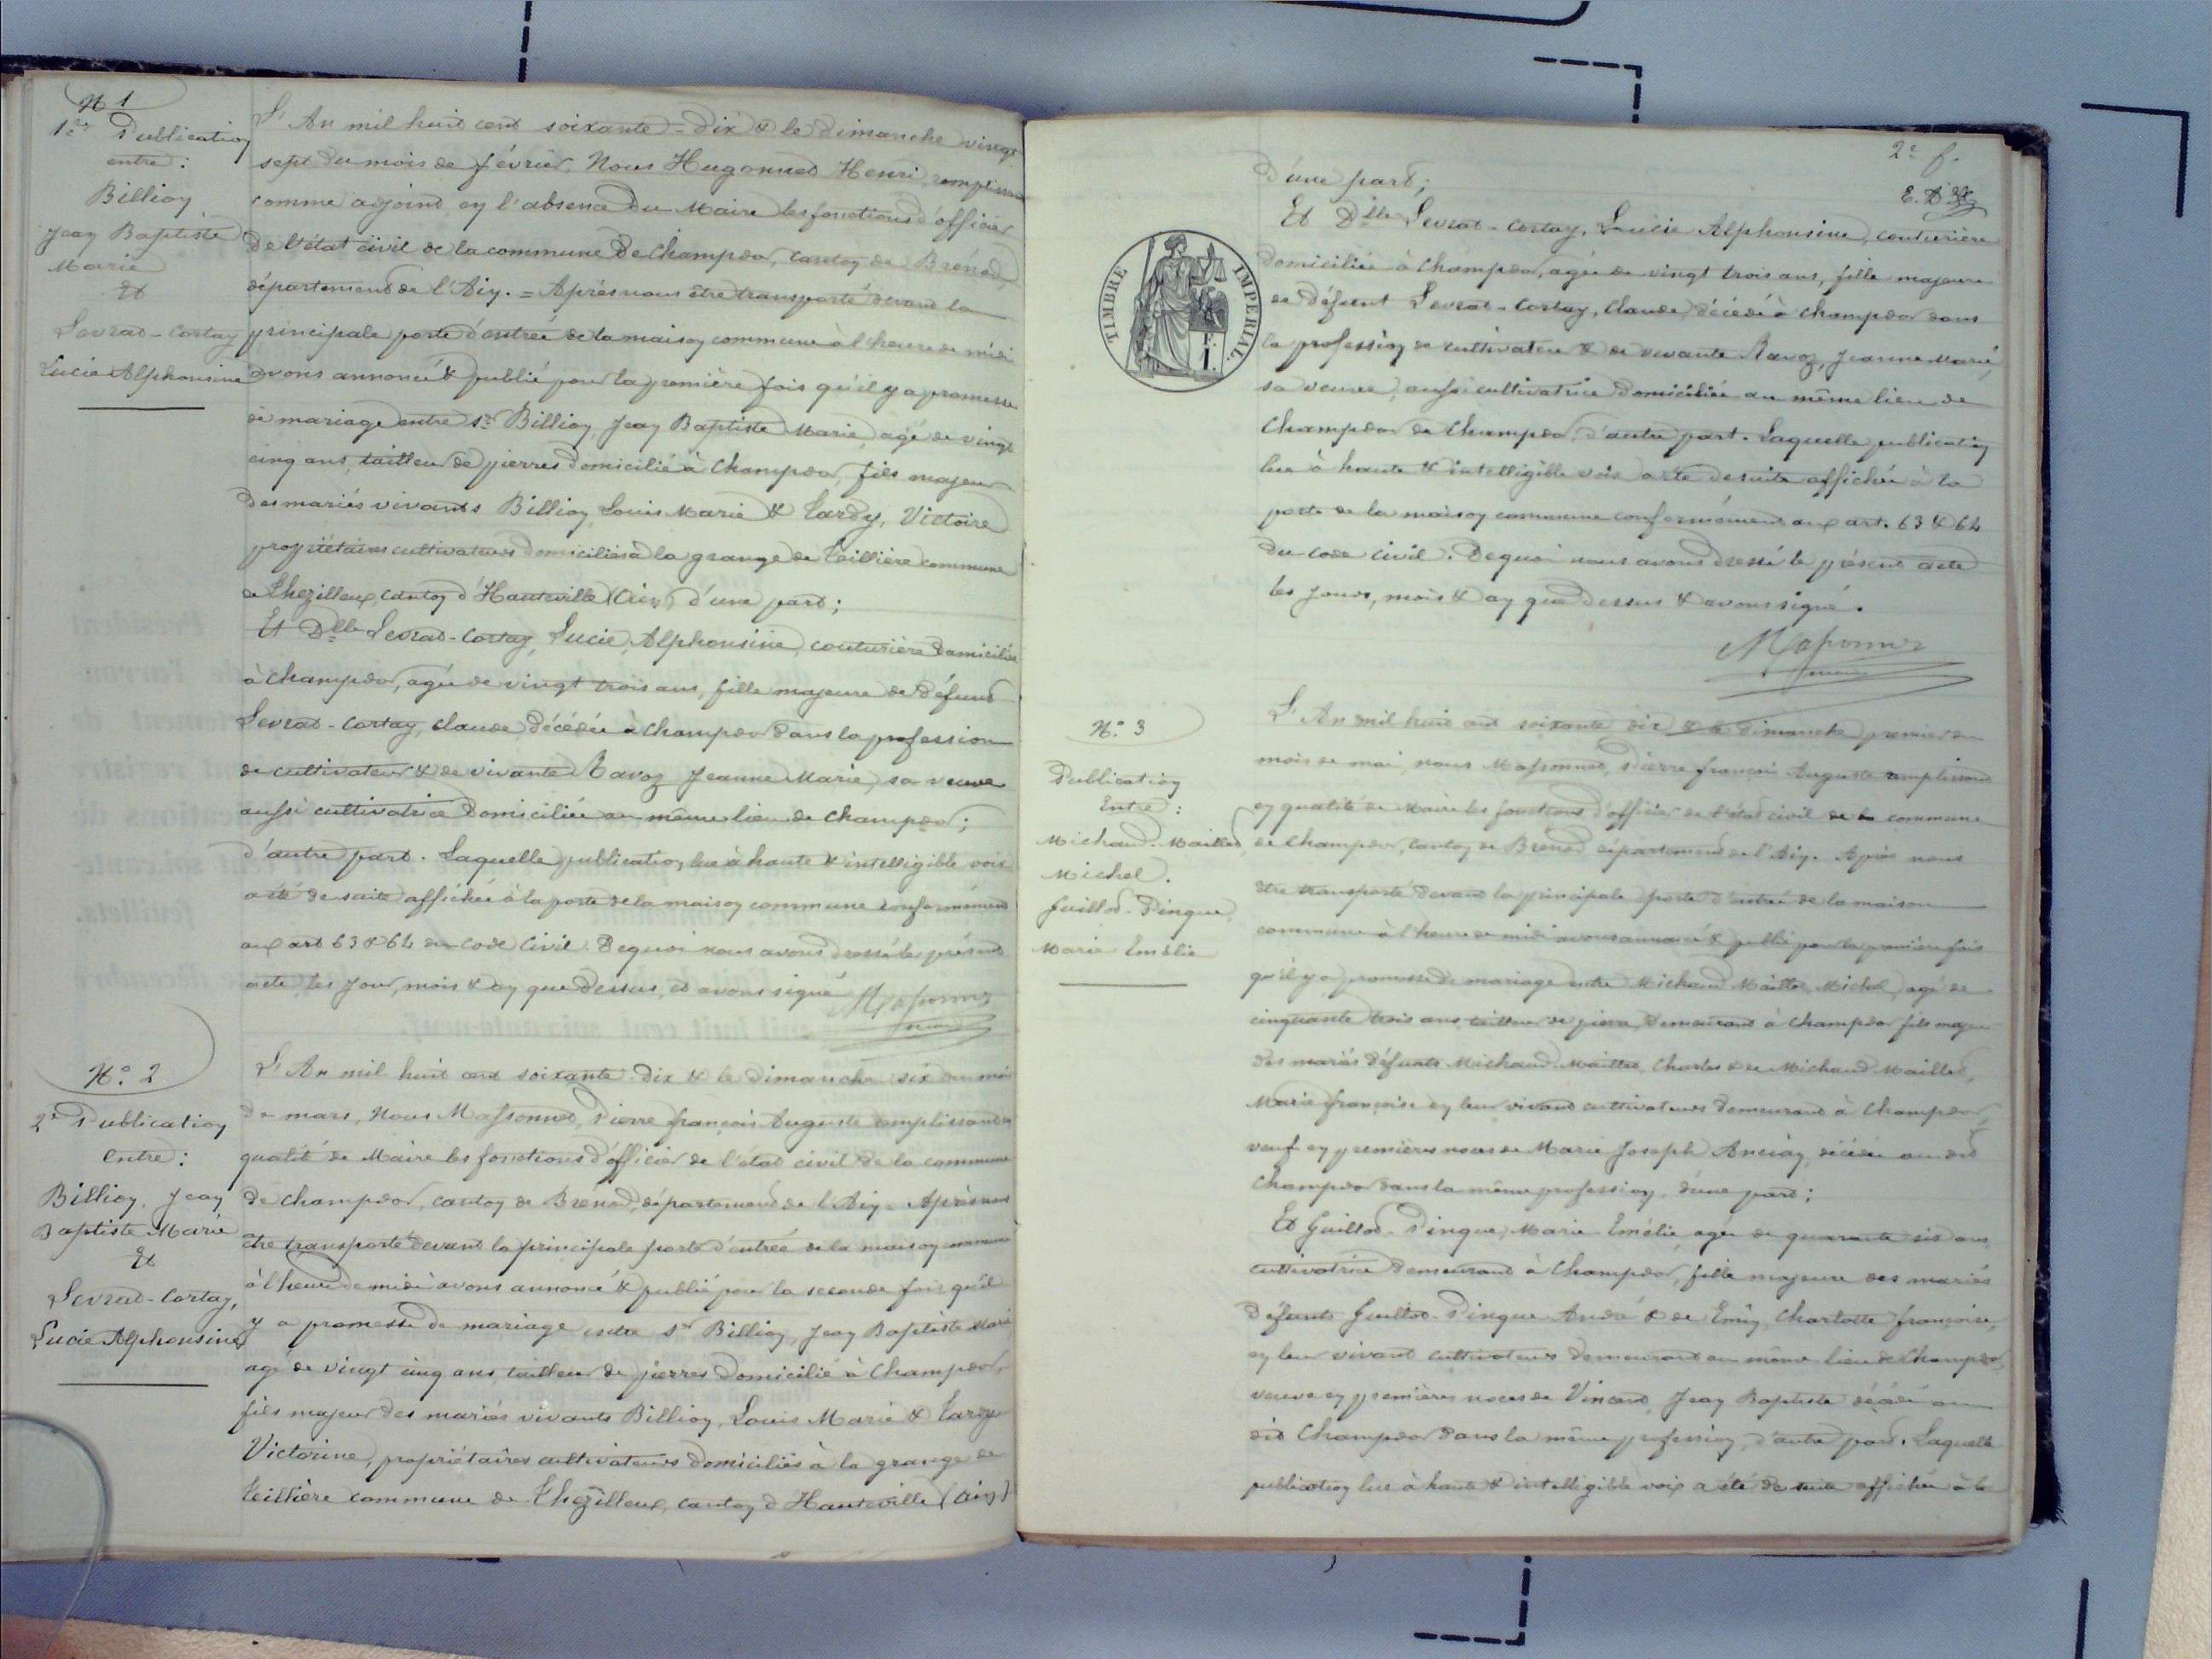 N° 1
1re Publication
entre :
Billion
Jean Baptiste
Marie
Et
Levrat-Cortay
Lucie Alphonsine
L'An mil huit cent soixante-dix & le dimanche vingt
sept du mois de février. Nous Hugonnet Henri, remplissant
comme adjoint en l'absence du Maire les fonctions d'officier
de l'état civil de la commune de Champdor, canton de Brénod,
département de l'Ain. = Après nous être transporté devant la
principale porte d'entrée de la maison commune à l'heure de midi
avons annoncé & publié pour la première fois qu'il y a promesse
de mariage entre sr Billion, Jean Baptiste Marie, agé de vingt
cinq ans, tailleur de pierres domicilié à Champdor, fils majeur
des mariés vivants Billion, Louis Marie & Tardy, Victoire
propriétaires cultivateurs domiciliés à la grange de Teillière commune
de Thezilleux, canton d'Hauteville (Ain) d'une part ;
Et Dlle Levrat-Cortay, Lucie, Alphonsine, couturière domiciliée
à Champdor, agée de vingt trois ans, fille majeure de défunt
Levrat-Cortay, Claude, décédée à Champdor dans la profession
de cultivateur & de vivante Ravoz Jeanne Marie, sa veuve
aussi cultivatrice domiciliée au même lieu de Champdor ;
d'autre part. Laquelle publication, lue à haute & intelligible voix
a été de suite affichée à la porte de la maison commune conformément
aux art 63 & 64 du Code Civil. De quoi nous avons dressé le présent
acte, les jour, mois & an que dessus, et avons signé
Massonnet
N° 2
2e Publication
Entre :
Billion, Jean
Baptiste Marie
Et
Levrat-Cortay,
Lucie Alphonsine
L'An mil huit cent soixante-dix & le dimanche six du mois
de mars, Nous Massonnet, Pierre françois Auguste remplissant en
qualité de Maire les fonctions d'officier de l'état civil de la commune
de Champdor, canton de Brenod, département de l'Ain = Après nous
être transporté devant la principale porte d'entrée de la maison commune
à l'heure de midi avons annoncé & publié pour la seconde fois qu'il
y a promesse de mariage entre sr Billion, Jean Baptiste Marie
agé de vingt cinq ans tailleur de pierres domicilié à Champdor,
fils majeur des mariés vivants Billion, Louis Marie & Tardy
Victorine, propriétaires cultivateurs domiciliés à la grange de
Teillière commune de Thezilleux, canton d'Hauteville (Ain)
2e f.
TIMBRE IMPERIAL.
d'une part ;
Et Dlle Levrat-Cortay, Lucie Alphonsine, couturière
domiciliée à Champdor, agée de vingt trois ans, fille majeure
de défunt Levrat-Cortay, Claude, décédé à Champdor dans
la profession de cultivateur & de vivante Ravoz, Jeanne Marie,
sa veuve, aussi cultivatrice domiciliée au même lieu de
Champdor de Champdor, d'autre part. Laquelle publication
lue à haute & intelligible voix a été de suite affichée à la
porte de la maison commune conformément aux art. 63 & 64
du Code Civil. De quoi nous avons dressé le présent acte
les jours, mois & an que dessus & avons signé.
Massonnet
N° 3
Publication
Entre :
Michaud-Maillet,
Michel.
Guillot-Pingue
Marie Emélie
L'An mil huit cent soixante dix & le dimanche premier du
mois de mai, nous Massonnet, Pierre françois Auguste remplissant
en qualité de Maire les fonctions d'officier de l'état civil de la commune
de Champdor, canton de Brénod, département de l'Ain. Après nous
être transporté devant la principale porte d'entrée de la maison
commune à l'heure de midi avons annoncé & publié pour la première fois
qu'il y a promesse de mariage entre Michaud Maillet, Michel, agé de
cinquante trois ans tailleur de pierre, demeurant à Champdor fils majeur
des mariés défunts Michaud-Maillet, Charles & de Michaud Maillet,
Marie françoise en leur vivant cultivateurs demeurant à Champdor,
veuf en premières noces de Marie Joseph Ancian, décédée au dit
Champdor dans la même profession, d'une part ;
Et Guillot-Pingue, Marie Emélie agée de quarante six ans
cultivatrice demeurant à Champdor, fille majeure des mariés
défunts Guillot-Pingue André & de Emin, Charlotte françoise,
en leur vivant cultivateurs demeurant au même lieu de Champdor,
veuve en premières noces de Vincent, Jean Baptiste décédé au
dit Champdor dans la même profession, d'autre part. Laquelle
publication lue à haute & intelligible voix a été de suite affichée à la